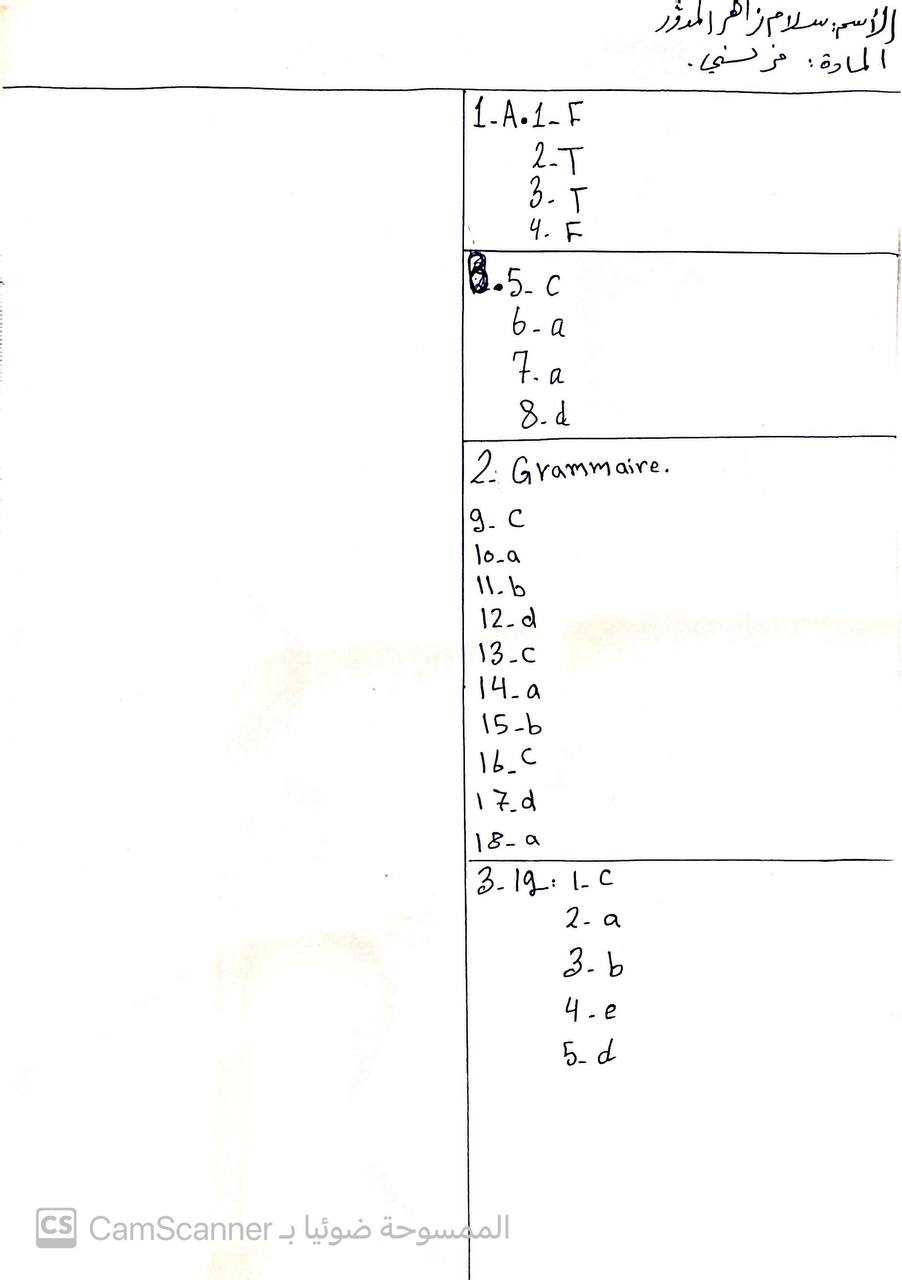 الأسم: سلام زاهر المدوّر
المادة: فرنسي.
1-A.1-F
2-T
3-T
4-F
B.5-c
6-a
7-a
8-d
2. Grammaire.
9-c
10-a
11-b
12-d
13-c
14-a
15-b
16-c
17-d
18-a
3-19: 1-c
2-a
3-b
4-e
5-d
CS CamScanner الممسوحة ضوئيا بـ